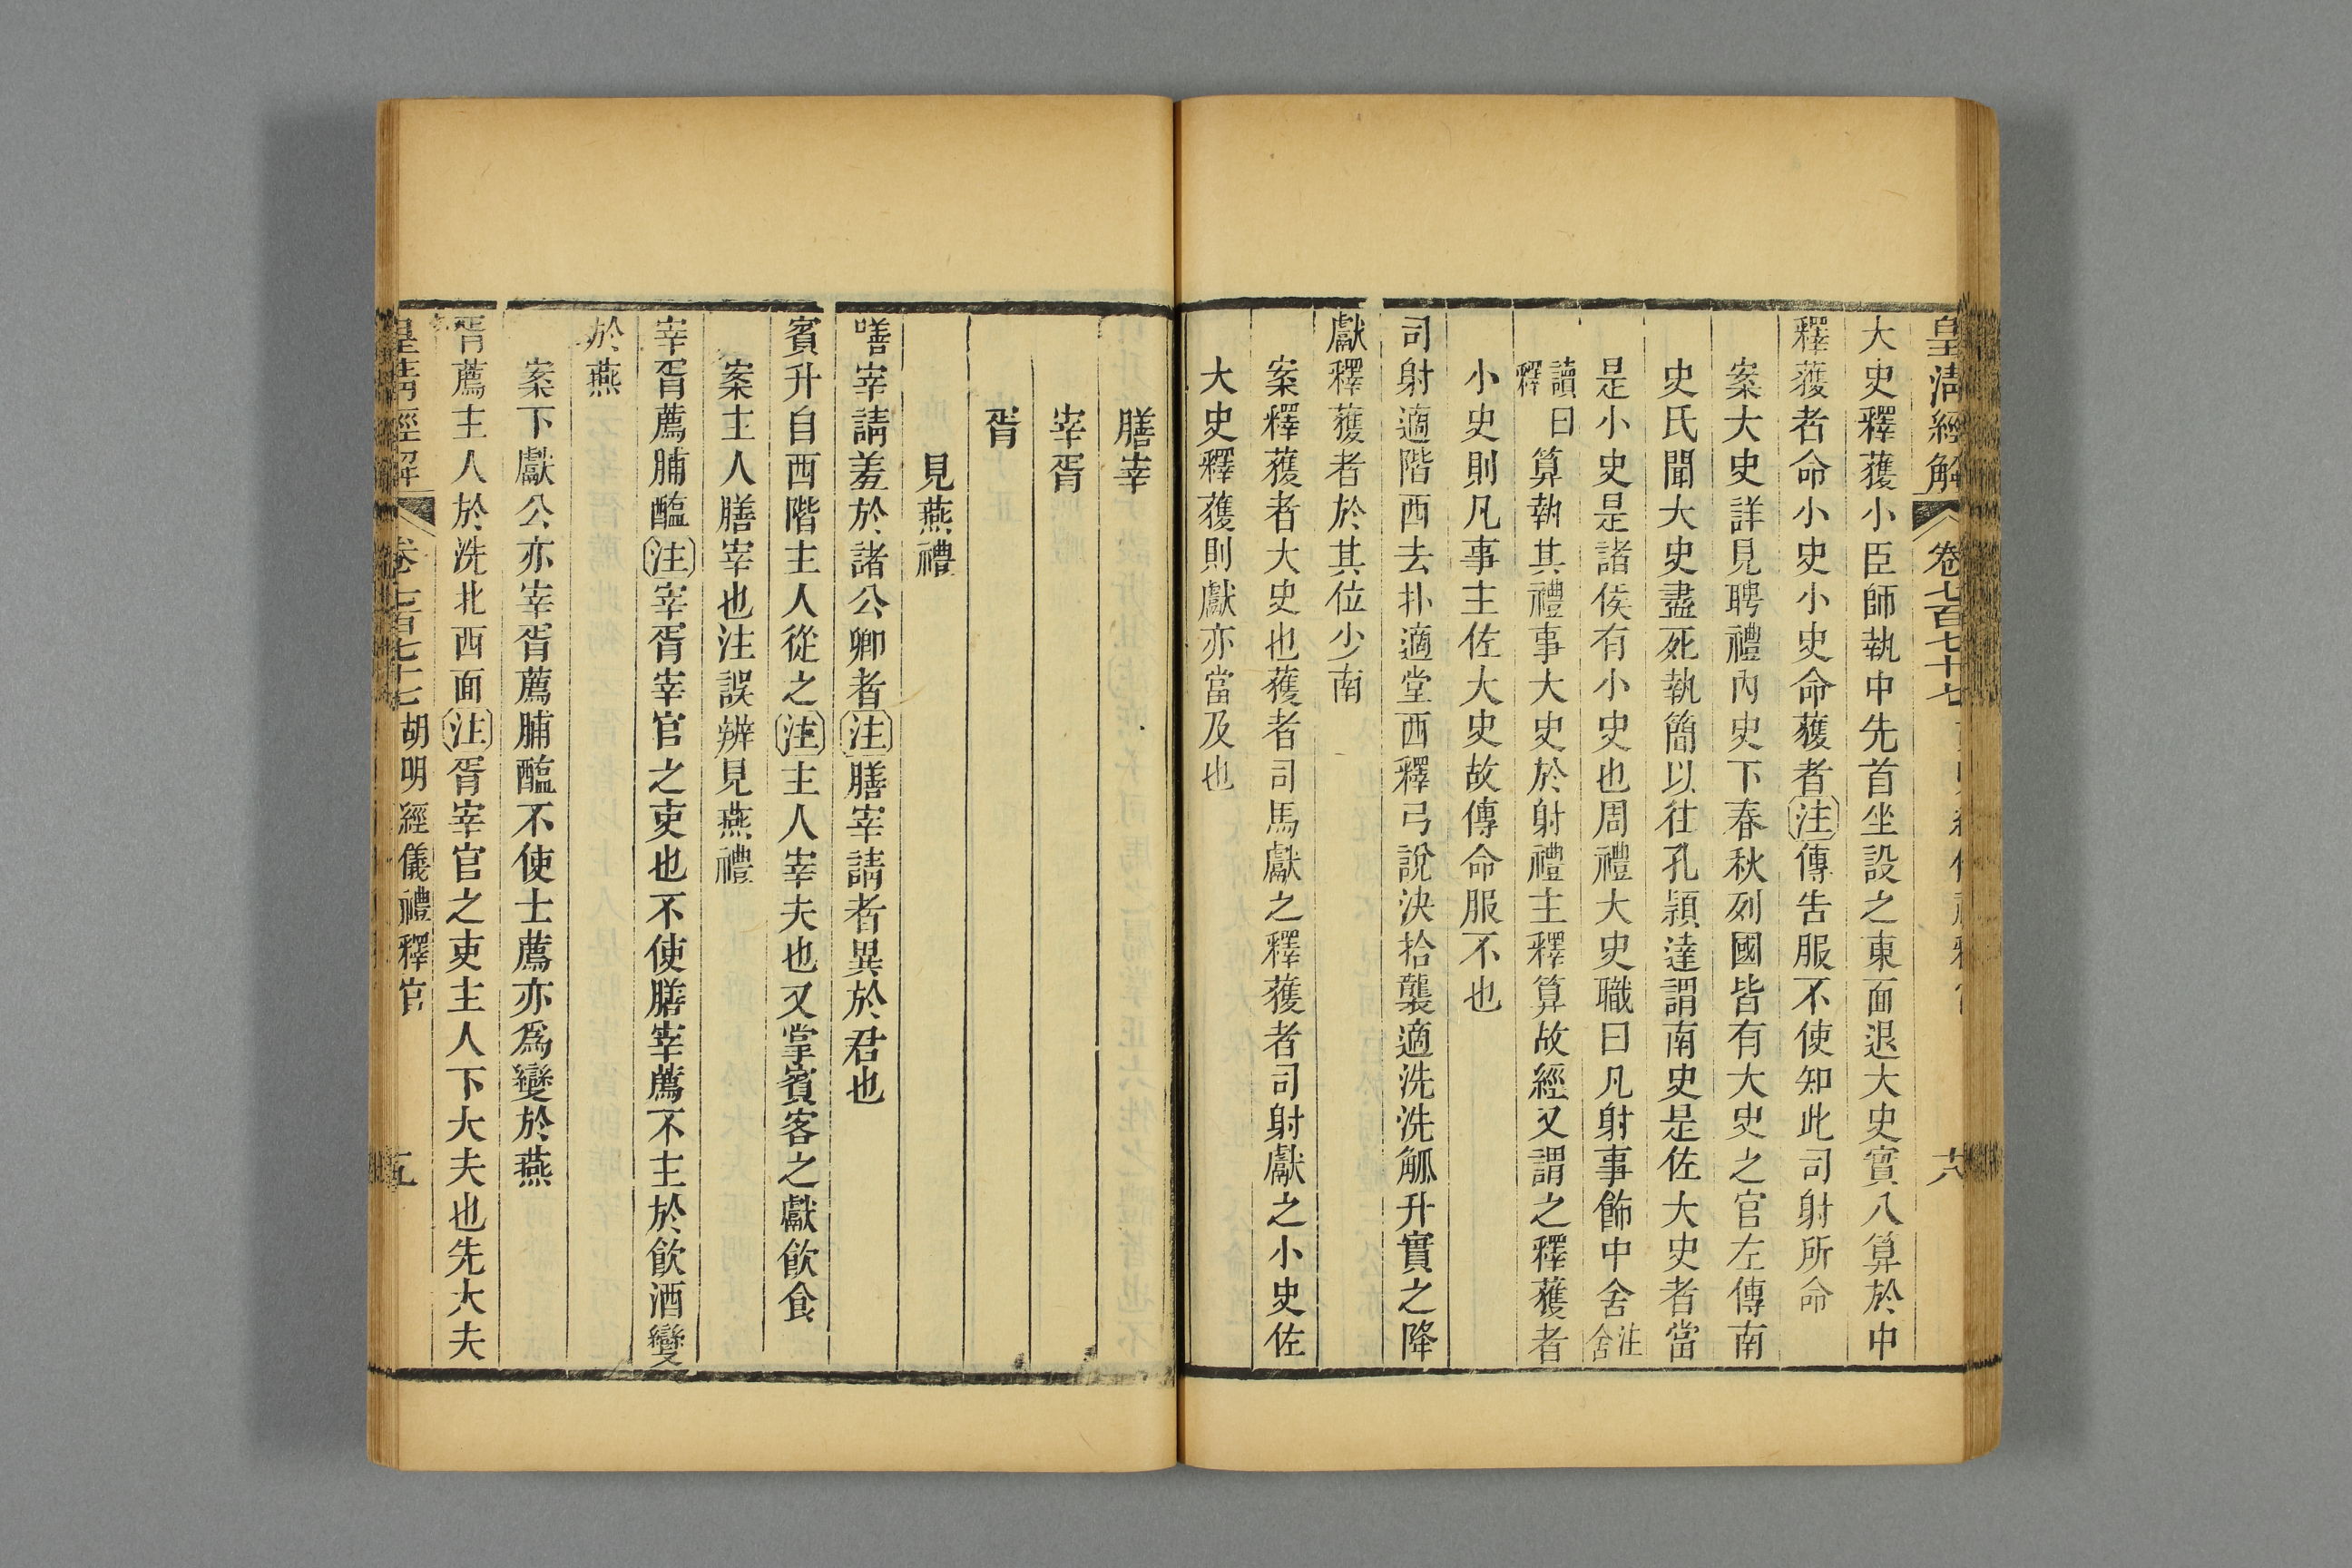 皇清經解 卷七百七十七 六
大史釋獲小臣師執中先首坐設之東面退大史實八算於中
釋獲者命小史小史命獲者注傳告服不使知此司射所命
案大史詳見聘禮內史下春秋列國皆有大史之官左傳南
史氏聞大史盡死執簡以往孔穎達謂南史是佐大史者當
是小史是諸侯有小史也周禮大史職曰凡射事飾中舍注舍
讀曰釋算執其禮事大史於射禮主釋算故經又謂之釋獲者
小史則凡事主佐大史故傳命服不也
司射適階西去扑適堂西釋弓說決拾襲適洗洗觚升實之降
獻釋獲者於其位少南
案釋獲者大史也獲者司馬獻之釋獲者司射獻之小史佐
大史釋獲則獻亦當及也
膳宰
宰胥
胥
見燕禮
膳宰請羞於諸公卿者注膳宰請者異於君也
賓升自西階主人從之注主人宰夫也又掌賓客之獻飲食
案主人膳宰也注誤辨見燕禮
宰胥薦脯醢注宰胥宰官之吏也不使膳宰薦不主於飲酒變
於燕
案下獻公亦宰胥薦脯醢不使士薦亦爲變於燕
胥薦主人於洗北西面注胥宰官之吏主人下大夫也先大夫
皇清經解 卷七百七十七 胡明經儀禮釋官 五